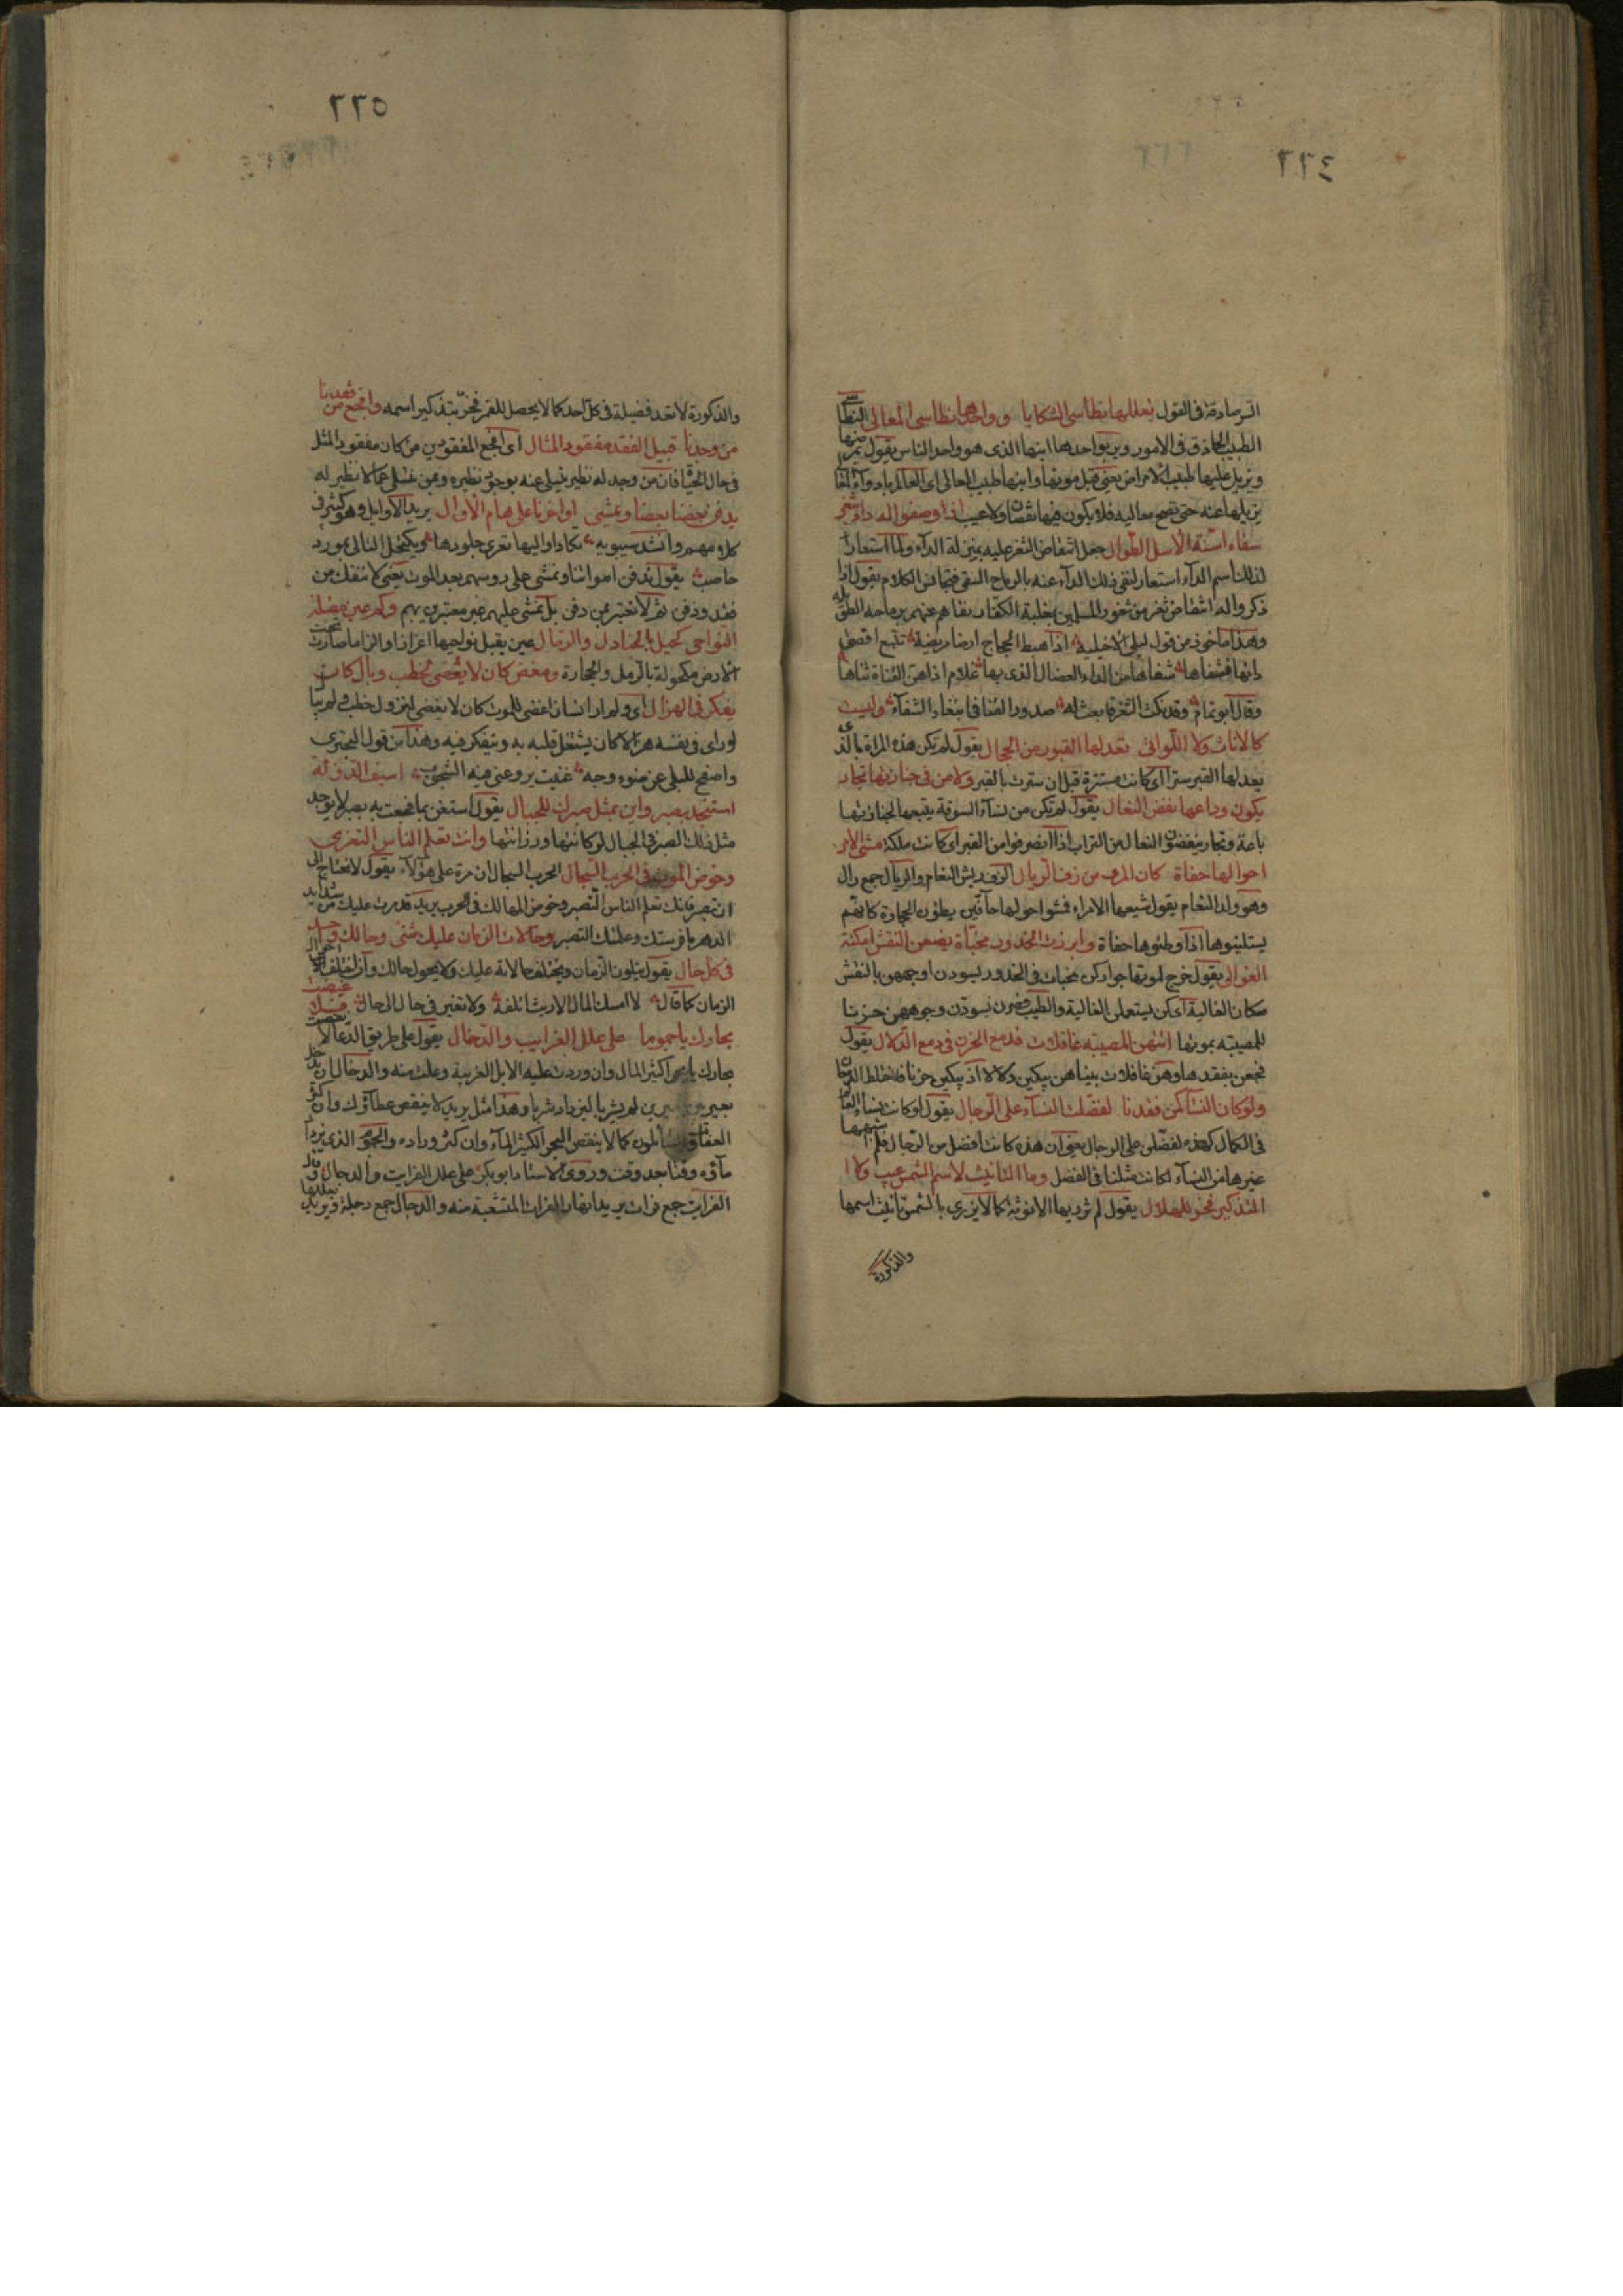 ٢٢٤
السر صادقة فى القول يعللها نطاسى الشكايا وواحدها نطاسى المعالى النطاسى
الطبيب الحاذق فى الامور ويريد بواحدها ابنها الذى هو واحد الناس يقول يمرضها
ويزيل عليها طبيب الامراض يعنى قبل موتها وابنها طبيب المعالى اى العالم بادواء المعالى
يزيلها عنه حتى تصح معاليه فلا يكون فيها نقصان ولا عيب اذا وصفوا له داء بثغر
سقاه اسنة الاسل الطوال جعل انتقاض الثغر عليه بمنزلة الداء ولما استعار
لذلك اسم الداء استعار لنفى ذلك الداء عنه بالرماح السقى فتجانس الكلام يقول اذا
ذكروا له انتقاض ثغر من ثغور المسلمين بغلبة الكفار نفاهم عنهم برماحه الطوال
وهذا ماخوذ من قول ليلى الاخيلية اذا هبط الحجاج ارضا مريضة تتبع اقصى
دائها فشفاها شفاها من الداء العضال الذى بها غلام اذا هز القناة ثناها
وقال ابو تمام وقد نكث الثغر فابعث له صدور القنا فى ابتغاء الشفاء وليست
كالاناث ولا اللواتى تعد لها القبور من الحجال يقول لم تكن هذه المراة بالذى
يعد لها القبر سترا اى كانت مستترة قبل ان سترت بالقبر ولا من فى جنازتها تجار
يكون وداعها نفض النعال يقول لم تكن من نساء السوقة يتبعها لجنازتها
باعة وتجار ينفضون النعال من التراب اذا انصرفوا من القبر اى كانت ملكة مشى الامر
احوالها حفاة كان المرو من زف الريال الزف ريش النعام والريال جمع رال
وهو ولد النعام يقول شيعها الامراء فمشوا حولها حافين يطؤن الحجارة كانهم
يستلينوها اذا وطئوها حفاة وابرزت الخدور مخبأة يضعن النقش امكنة
الغوالى يقول خرج لموتها جوار كن مخبات فى الخدور يسودن اوجههن بالنقش
مكان الغالية اى كن يستعملن الغالية والطيب فصرن يسودن وجوههن حزنا
للمصيبة بموتها اتتهن المصيبة غافلات فدمع الحزن فى دمع الدلال يقول
فجعن بفقدها وهن غافلات بينا هن يبكين دلالا اذ يبكين حزنا فاختلط الدمعان
ولو كان النساء كمن فقدنا لفضلت النساء على الرجال يقول لو كانت نساء العالم
فى الكمال كهذه لفضلن على الرجال يعنى ان هذه كانت افضل من الرجال فلم اشبهها
غيرها من النساء لكانت مثلنا فى الفضل وما التانيث لاسم الشمس عيب ولا ا
التذكير فخر للهلال يقول لم تزر بها الانوثة كما لا يزرى بالشمس تانيث اسمها
والذكورة
٢٢٥
والذكورة لا تعد فضيلة فى كل احد كما لا يحصل للقمر فخر بتذكير اسمه وافجع من فقدنا
من وجدنا قبيل الفقد مفقود المثال اى افجع المفقودين من كان مفقود المثل
فى حال الحيوة فان من وجد له نظير يتسلى عنه بوجود نظيره وبمن نتسلى عما لا نظير له
يدفن بعضنا بعضا وتمشى اواخرنا على هام الاوالى يريد الاوايل وهو كثير فى
كلامهم وانشد سيبويه تكاد اواليها تفرى جلودها ويكتحل التالى بمور
حاصب يقول ندفن امواتنا ونمشى على روسهم بعد الموت يعنى لا ننفك من
فقد ودفن ثم لا نعتبر بمن دفن بل نمشى عليهم غير معتبرين بهم وكم عين مقبلة
النواحى كحيل بالجنادل والرمال عين يقبل نواحيها اعزازا واكراما صارت تحت
الارض مكحولة بالرمل والحجارة ومغض كان لا يغضى لخطب وبال كان
يفكر فى الهزال اى ولم ار انسان اغضى للموت كان لا يغضى لنزول خطب ولم يبال
لو راى فى نفسه هزالا كان يشتغل قلبه به ويتفكر فيه وهذا من قول البحترى
واصفح للبلى عن ضوء وجه غنيت يروعنى فيه الشحوب اسيف الدولة
استنجد بصبر واين بمثل صبرك للجبال يقول استعن بما فجعت به بصبر لا يوجد
مثل ذلك الصبر فى الجبال لركانتها ورزانتها وانت تعلم الناس التعزى
وخوض الموت فى الحرب السجال الحرب السجال ان مرة على هؤلاء يقول لا تحتاج الى
ان تصبر فانك تعلم الناس التصبر وخوض المهالك فى الحرب يريد قد مرت عليك من شدايد
الدهر ما فرستك وعلمتك التصبر وحالات الزمان عليك شتى وحالك واحد
فى كل حال يقول يتلون الزمان ويختلف حالاته عليك ولا يحول حالك وان اختلفت احوال
الزمان كما قال لا امسك المال الا ريث اتلفه ولا تغير فى حال الى حال فلا غيضت
بحارك يا جموما على علل الغرايب والدخال يقول على طريق الدعاء لا نقصت
بحارك يا بحرا كثير المال وان وردت عليه الابل الغريبة وعلت منه والدخال ان يدخل
بعير بين بعيرين لم يشربا ليزداد شربا وهذا مثل يريد لا ينقص عطاؤك وان كثر
العفاة والسائلون كما لا ينقص البحر الكثير الماء وان كثر وراده والجموم الذى يزداد
ماؤه وقتا بعد وقت وروى الاستاد ابو بكر على علل الفرايت والدجال وقال
الفرايت جمع فرات يريد انهار الفرات المتشعبة منه والدجال جمع دجلة ويريد